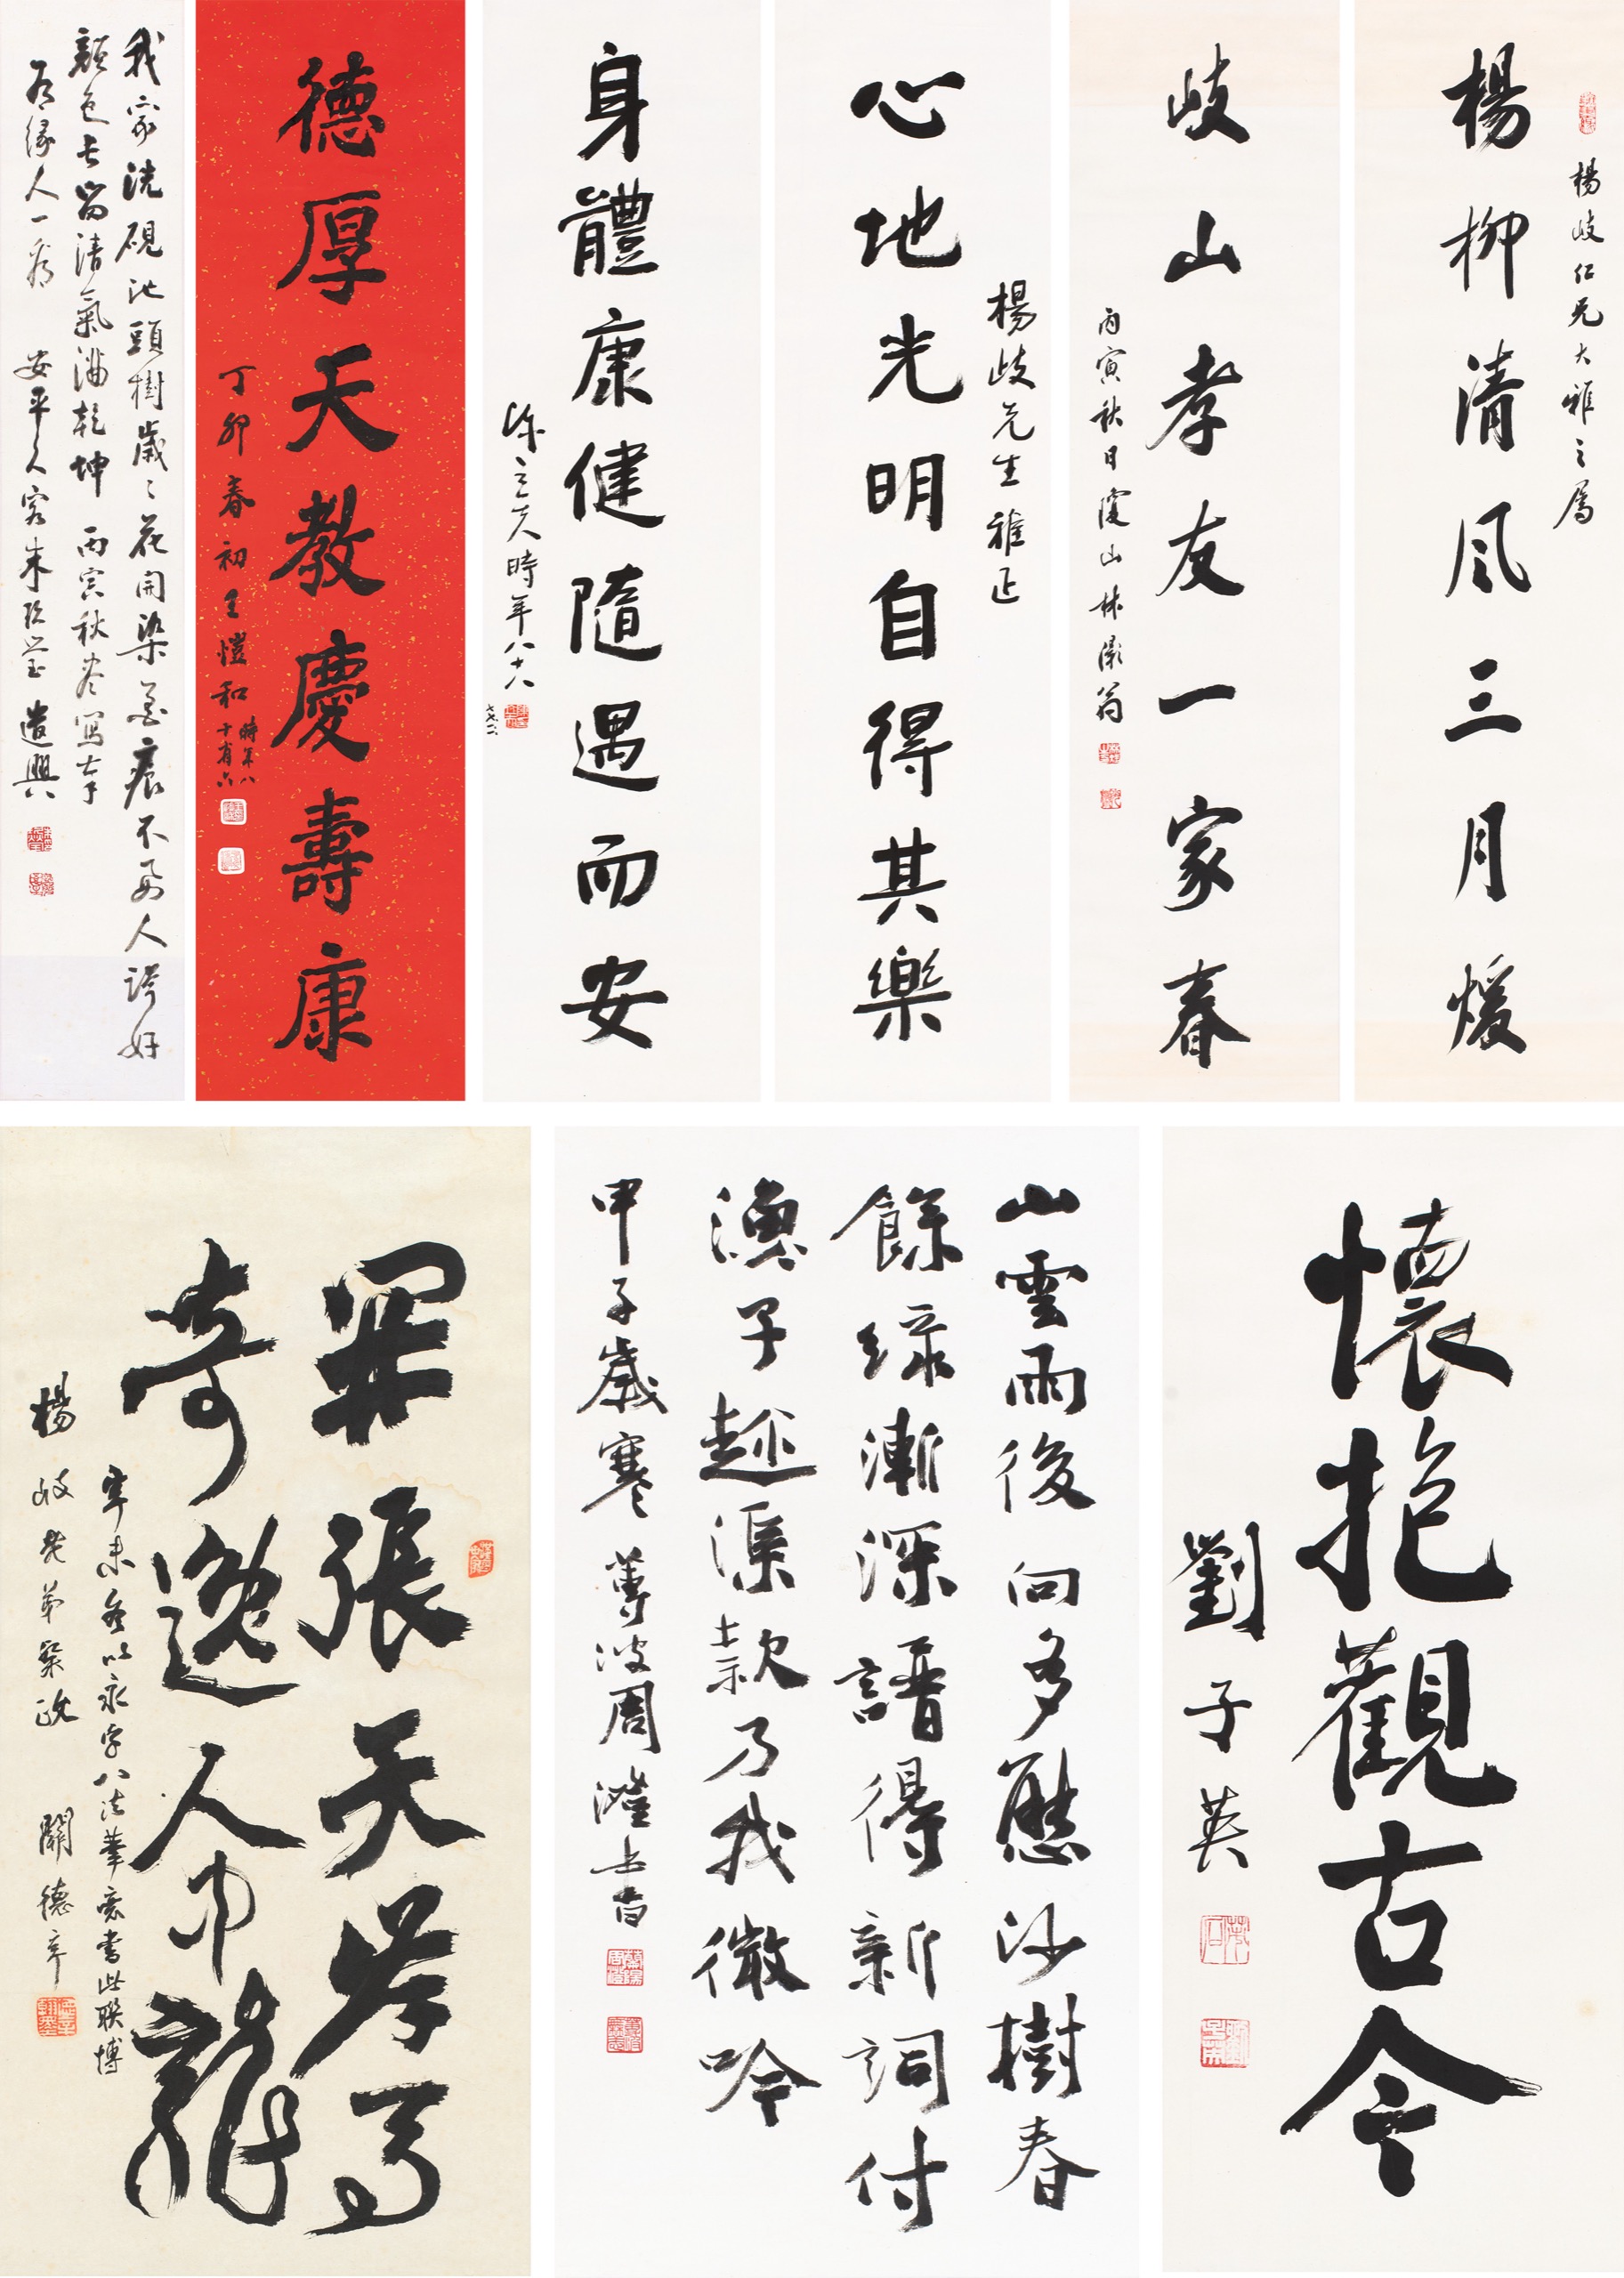 楊岐仁兄大雅之屬
楊柳清風三月煖
岐山孝友一家春
丙寅秋日霞山林漱翁
楊岐先生雅正
心地光明自得其樂
身體康健隨遇而安
陳立夫時年八十八
德厚天教慶壽康
丁卯春初王愷和時年八十有六
我家洗硯池頭樹歲歲花開染墨痕不要人誇好
顏色長留清氣滿乾坤 丙寅秋杪寫奉
有緣人一粲 安平久客朱玖瑩遣興
懷抱觀古今
劉子英
山雲雨後向多懸沙樹春
餘綠漸深譜得新詞付
漁子越溪款乃我微吟
甲子歲寒 蓴波周澄書
開張天岸馬
奇逸人中龍
辛未冬以永字八法筆意書此聯博
楊岐老弟粲政 關德辛